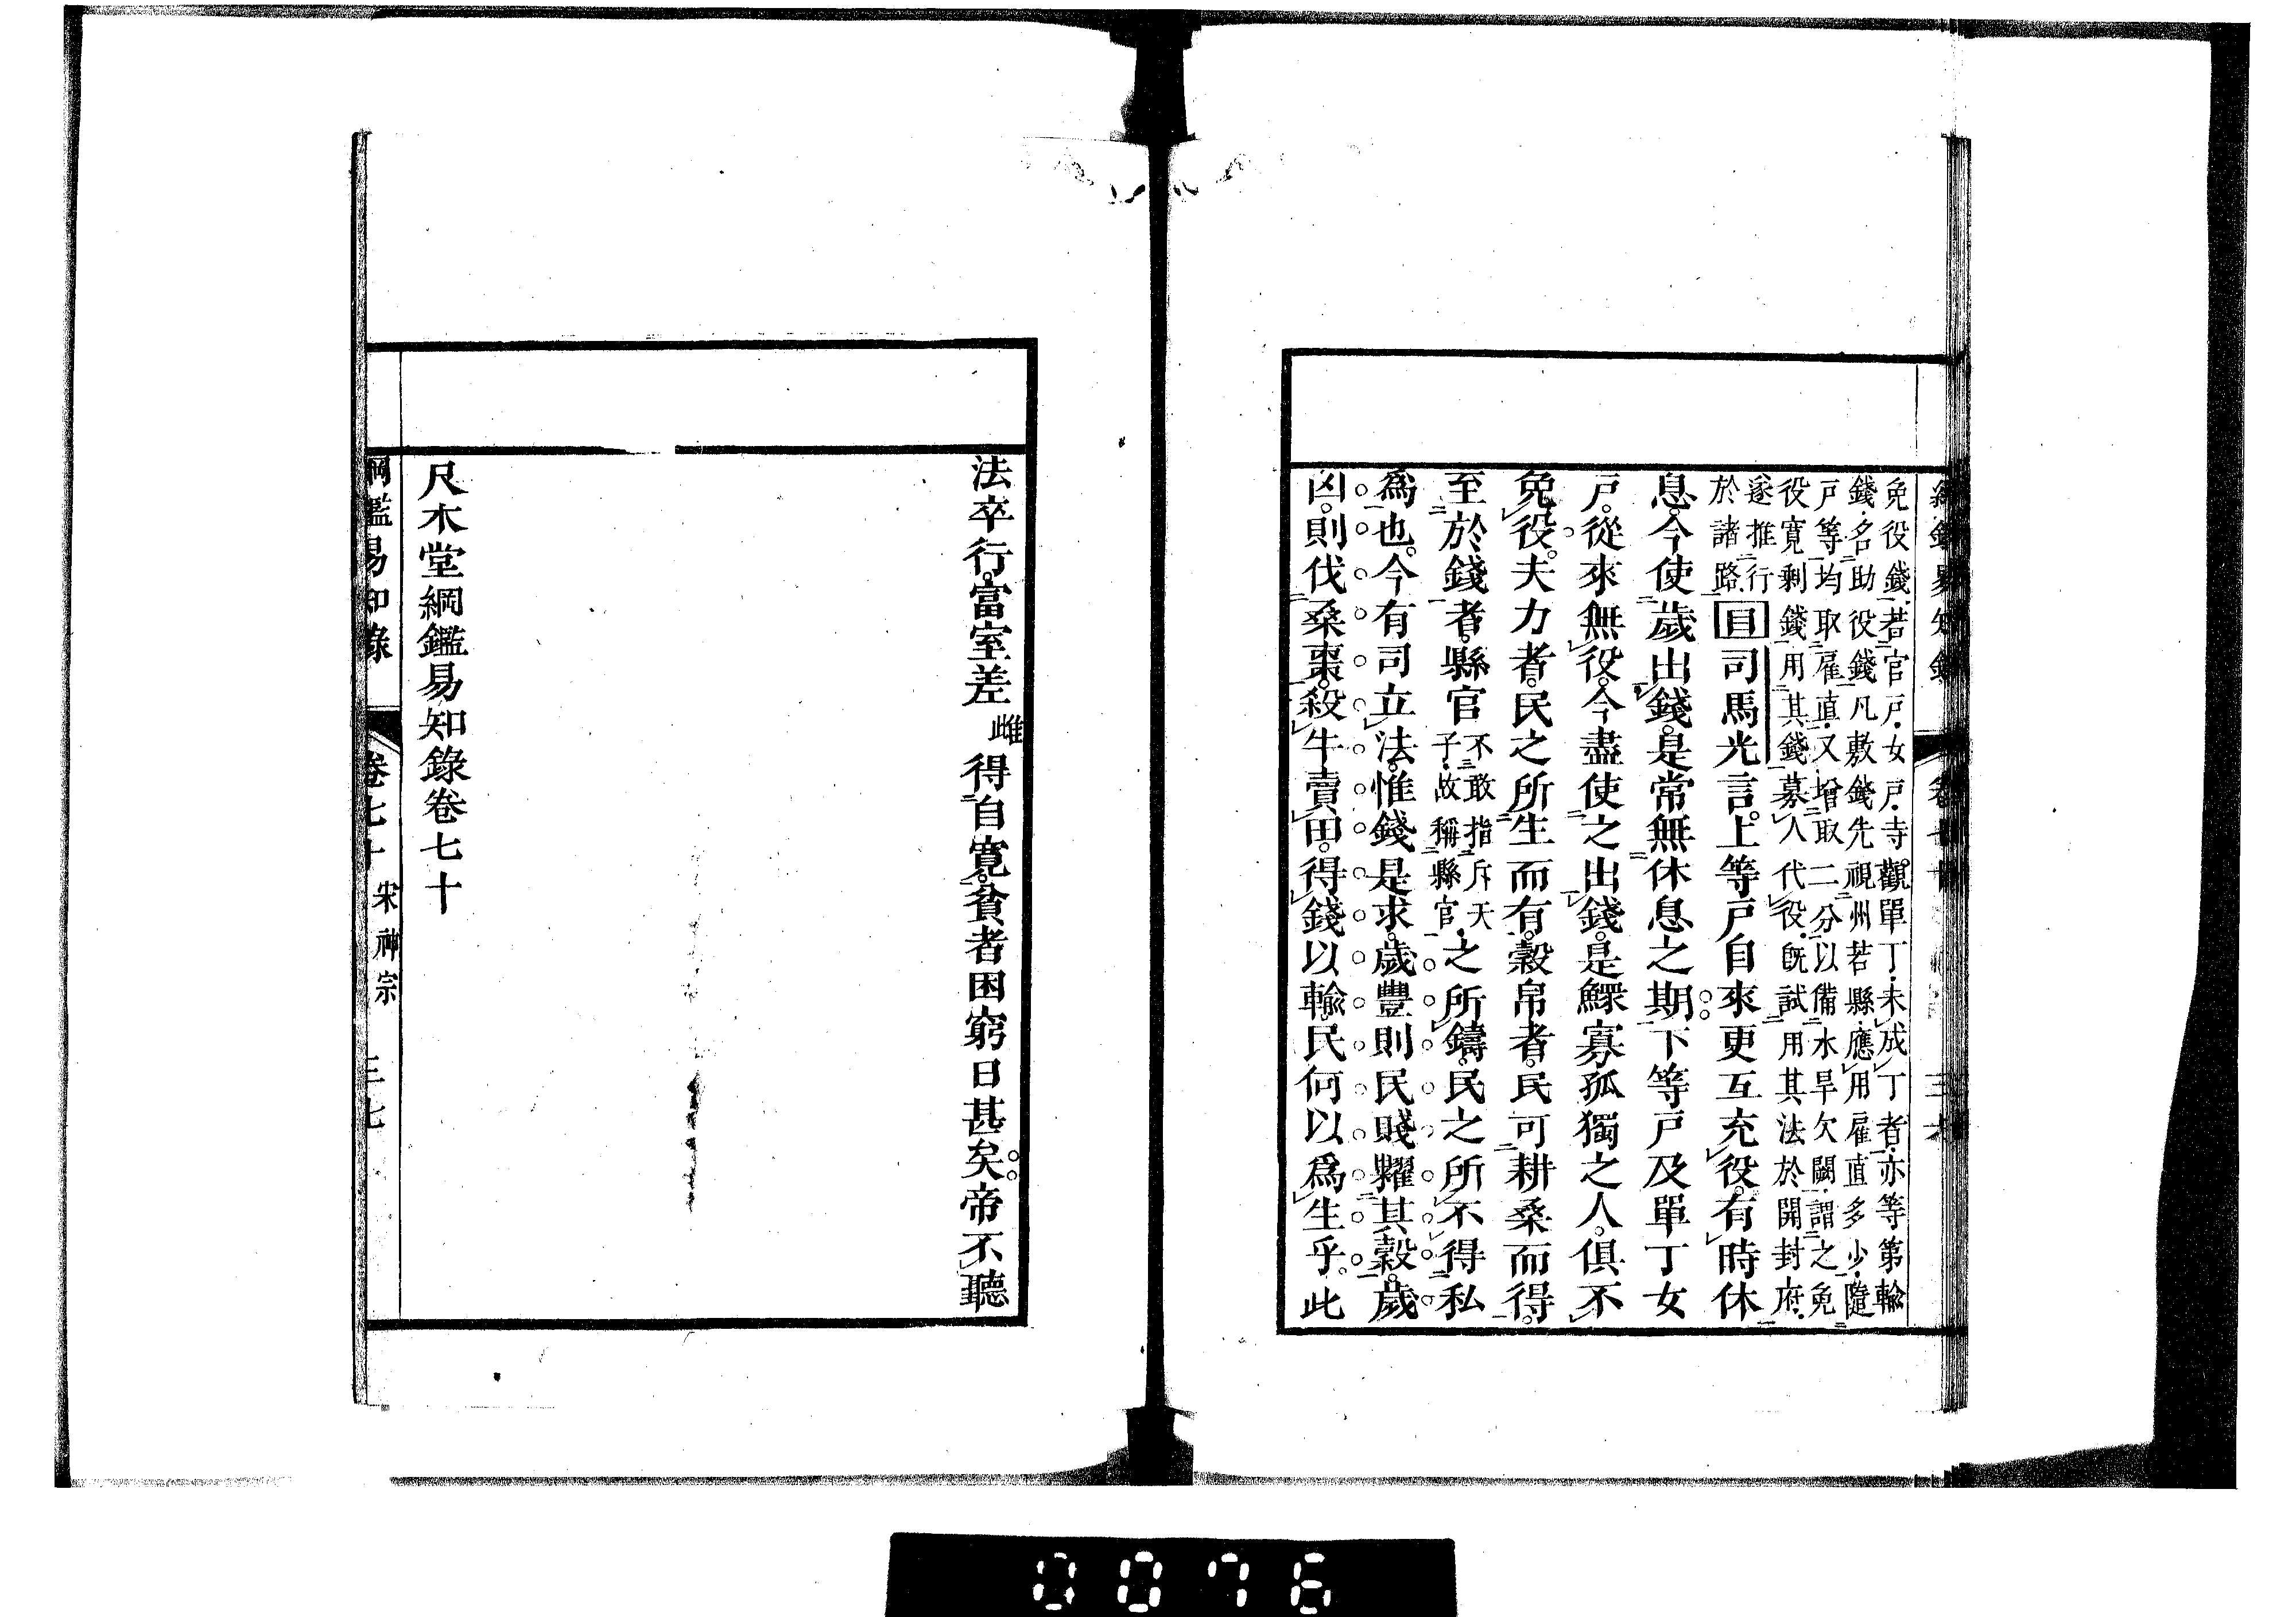 綱鑑易知錄 卷七十 三六
免役錢若官戶女戶寺觀單丁未成丁者亦等第輸
錢名助役錢凡敷錢先視州若縣應用雇直多少隨
戶等均取雇直又增取二分以備水旱欠闕謂之免
役寬剩錢用其錢募人代役既試用其法於開封府
遂推行
於諸路
目司馬光言上等戶自來更互充役有時休
息今使歲出錢是常無休息之期下等戶及單丁女
戶從來無役今盡使之出錢是鰥寡孤獨之人俱不
免役夫力者民之所生而有穀帛者民可耕桑而得
至於錢者縣官不敢指斥天子故稱縣官之所鑄民之所不得私
爲也今有司立法惟錢是求歲豐則民賤糶其穀歲
凶則伐桑棗殺牛賣田得錢以輸民何以爲生乎此
法卒行富室差雌得自寬貧者困窮日甚矣帝不聽
尺木堂綱鑑易知錄卷七十
綱鑑易知錄 卷七十 宋神宗 三七
0076